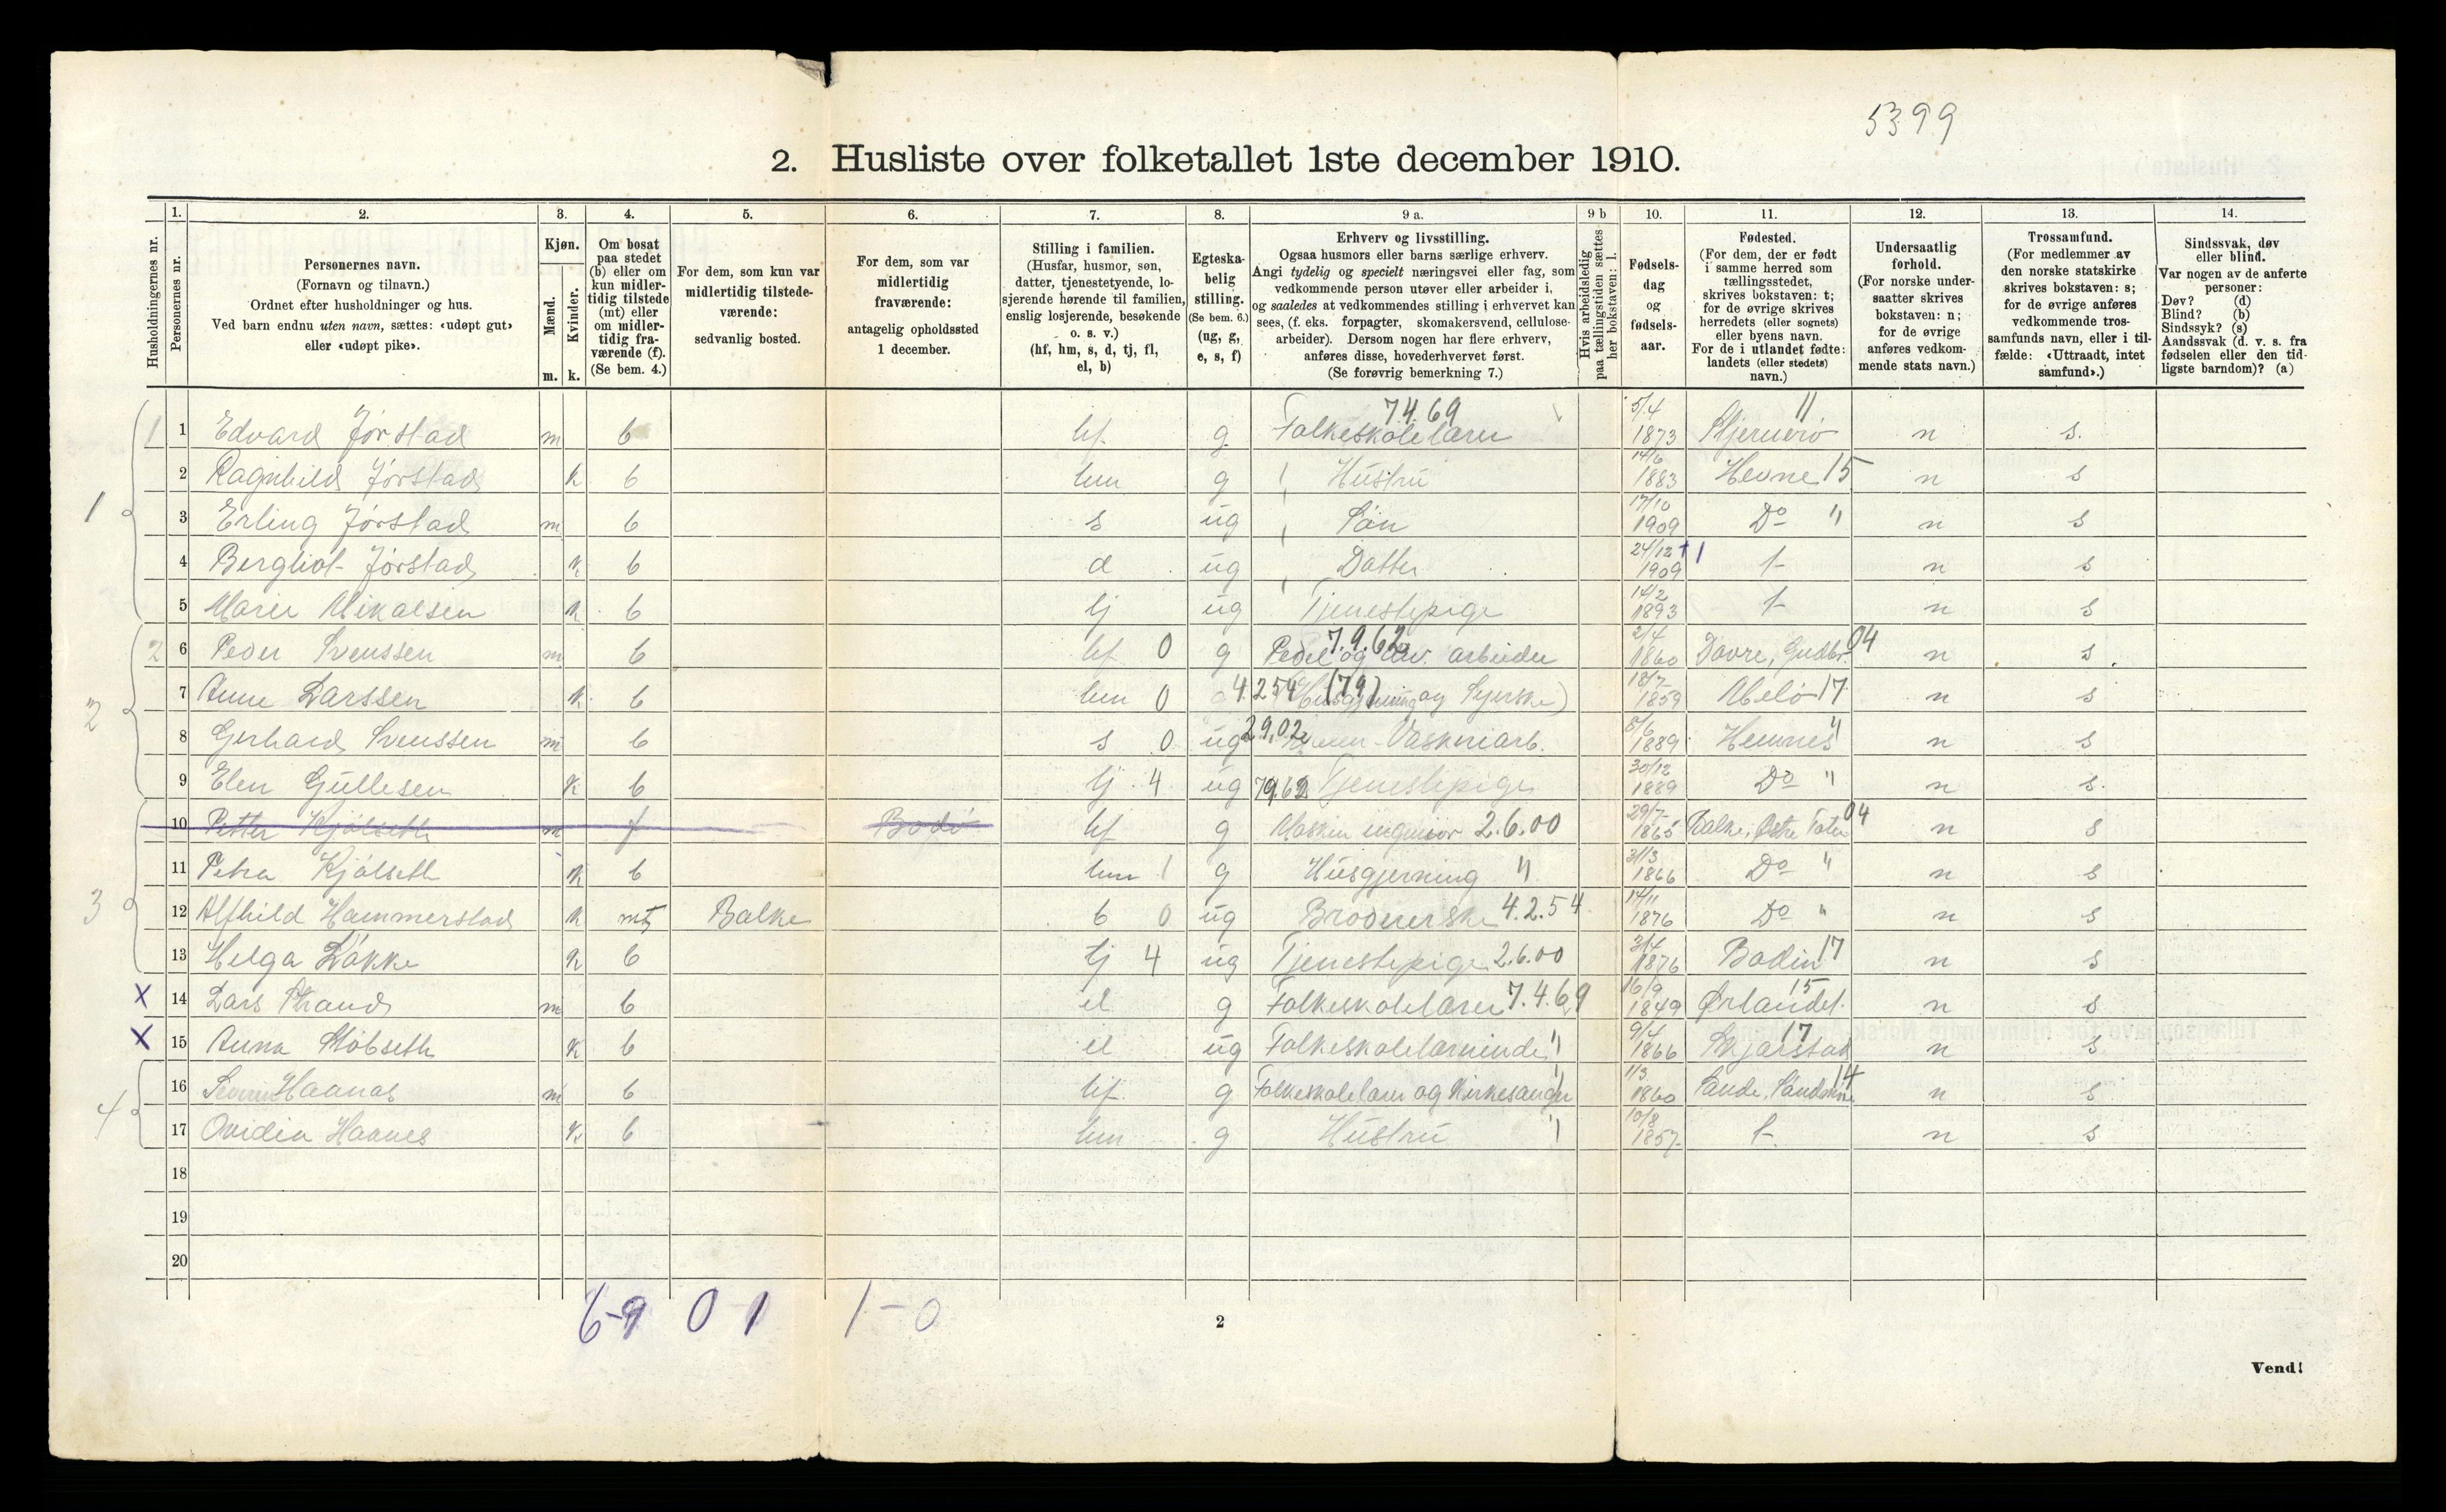 5399
2. Husliste over folketallet 1ste december 1910.
Husholdningernes nr.
1. Personernes nr.
2. Personernes navn.
(Fornavn og tilnavn.)
Ordnet efter husholdninger og hus.
Ved barn endnu uten navn, sættes: «udøpt gut»
eller «udøpt pike».
3. Kjøn.
Mænd. m.
Kvinder. k.
4. Om bosat
paa stedet
(b) eller om
kun midler-
tidig tilstede
(mt) eller
om midler-
tidig fra-
værende (f).
(Se bem. 4.)
5. For dem, som kun var
midlertidig tilstede-
værende:
sedvanlig bosted.
6. For dem, som var
midlertidig
fraværende:
antagelig opholdssted
1 december.
7. Stilling i familien.
(Husfar, husmor, søn,
datter, tjenestetyende, lo-
sjerende hørende til familien,
enslig losjerende, besøkende
o. s. v.)
(hf, hm, s, d, tj, fl,
el, b)
8. Egteska-
belig
stilling.
(Se bem. 6.)
(ug, g,
e, s, f)
9 a. Erhverv og livsstilling.
Ogsaa husmors eller barns særlige erhverv.
Angi tydelig og specielt næringsvei eller fag, som
vedkommende person utøver eller arbeider i,
og saaledes at vedkommendes stilling i erhvervet kan
sees, (f. eks. forpagter, skomakersvend, cellulose-
arbeider). Dersom nogen har flere erhverv,
anføres disse, hovederhvervet først.
(Se forøvrig bemerkning 7.)
9 b Hvis arbeidsledig
paa tællingstiden sættes
her bokstaven: l.
10. Fødsels-
dag
og
fødsels-
aar.
11. Fødested.
(For dem, der er født
i samme herred som
tællingsstedet,
skrives bokstaven: t;
for de øvrige skrives
herredets (eller sognets)
eller byens navn.
For de i utlandet fødte:
landets (eller stedets)
navn.)
12. Undersaatlig
forhold.
(For norske under-
saatter skrives
bokstaven: n;
for de øvrige
anføres vedkom-
mende stats navn.)
13. Trossamfund.
(For medlemmer av
den norske statskirke
skrives bokstaven: s;
for de øvrige anføres
vedkommende tros-
samfunds navn, eller i til-
fælde: «Uttraadt, intet
samfund».)
14. Sindssvak, døv
eller blind.
Var nogen av de anførte
personer:
Døv? (d)
Blind? (b)
Sindssyk? (s)
Aandssvak (d. v. s. fra
fødselen eller den tid-
ligste barndom)? (a)
1 1 Edvard Jørstad m b hf g Folkeskolelærer 7.4.69 5/4 1873 11 n s.
2 Ragnhild Jørstad k b hm g Hustru 14/6 1883 Hevne 15 n s
3 Erling Jørstad m b s ug Søn 17/10 1909 Do " n s
4 Bergliot Jørstad k b d ug Datter 24/12 1909 t n s
5 Marie Mikalsen k b tj ug Tjenestepige 14/2 1893 t n s
2 6 Peder Svenssen m b hf 0 g Pedel og div. arbeider 7.9.62 2/4 1860 Dovre, Gudbr. 04 n s.
7 Anne Larssen k b hm 0 4.254 (79) Husgjerning og Syerske) 18/7 1859 17 n s
8 Gerhard Svenssen m b s 0 ug 29.02 Vaskeriarb. 8/6 1889 Hemnes " n s
9 Elen Gullesen k b tj 4 ug 79.62 Tjenestepige 30/12 1889 Do " n s.
10 Petter Kjølseth m f Bodø hf g Maskin ingeniør 2.6.00 29/7 1865 Balke, Østre Toten 04 n s
11 Petra Kjølseth k b hm 1 g Husgjerning " 31/3 1866 Do " n s
3 12 Alfhild Hammerstad k mt Balke b 0 ug Brodererske 4.2.54 14/11 1876 Do " n s
13 Helga Løkke k b tj 4 ug Tjenestepige 2.6.00 3/4 1876 Bodin 17 n s
X 14 Lars Strand m b el g Folkeskolelærer 7.4.69 16/9 1849 Ørlandet. 15 n s
X 15 Anna Støbseth k b el ug Folkeskolelærerinde " 9/4 1866 Skjerstad 17 n s
4 16 Haanæs m b hf. g Folkeskolelærer og Kirkesanger 1/3 1860 Sande, 14 n s
17 Ovidia Haanes k b hm g Hustru " 10/8 1857 t n s
18
19
20
6-9 0 1 1-0
2
Vend!